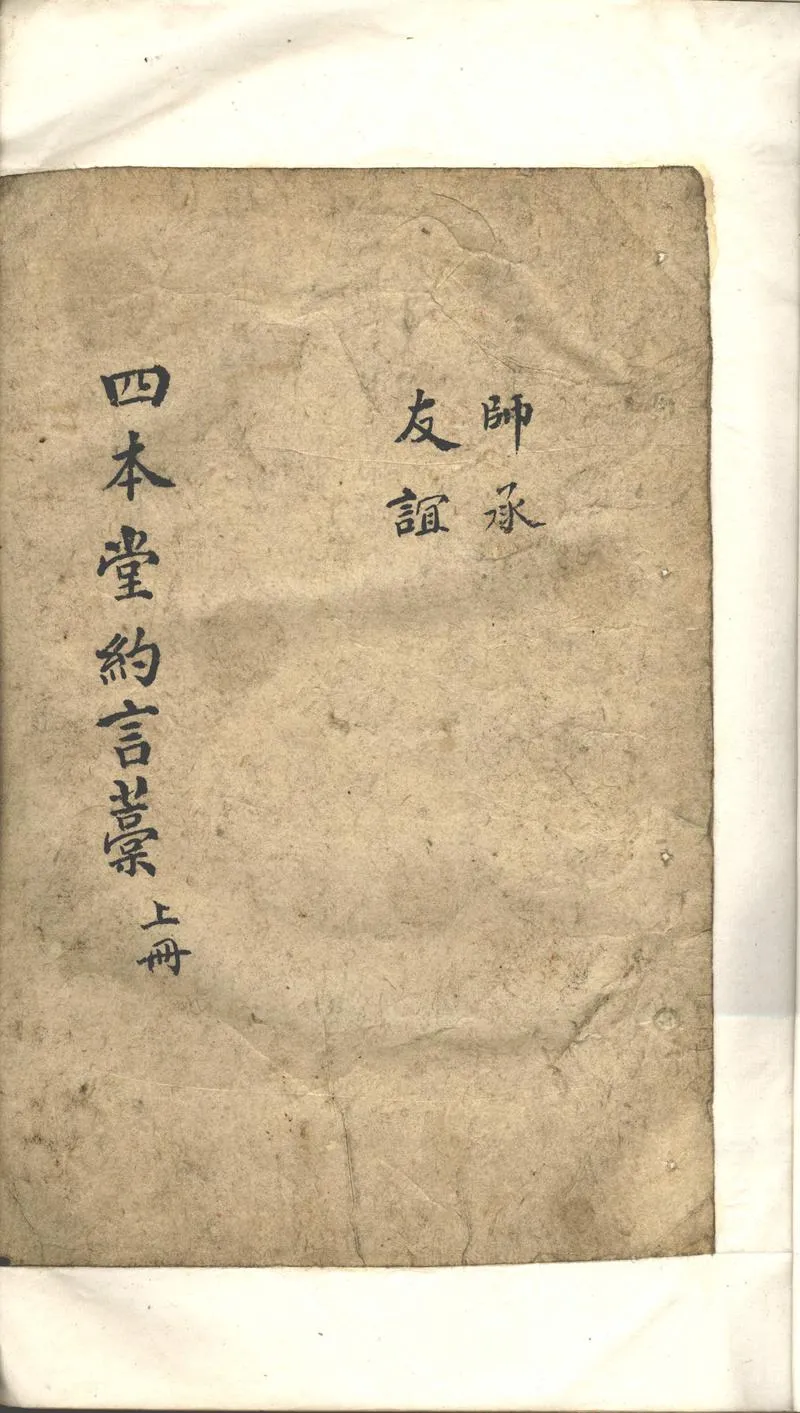 師承
友誼
四本堂約言藁 上冊